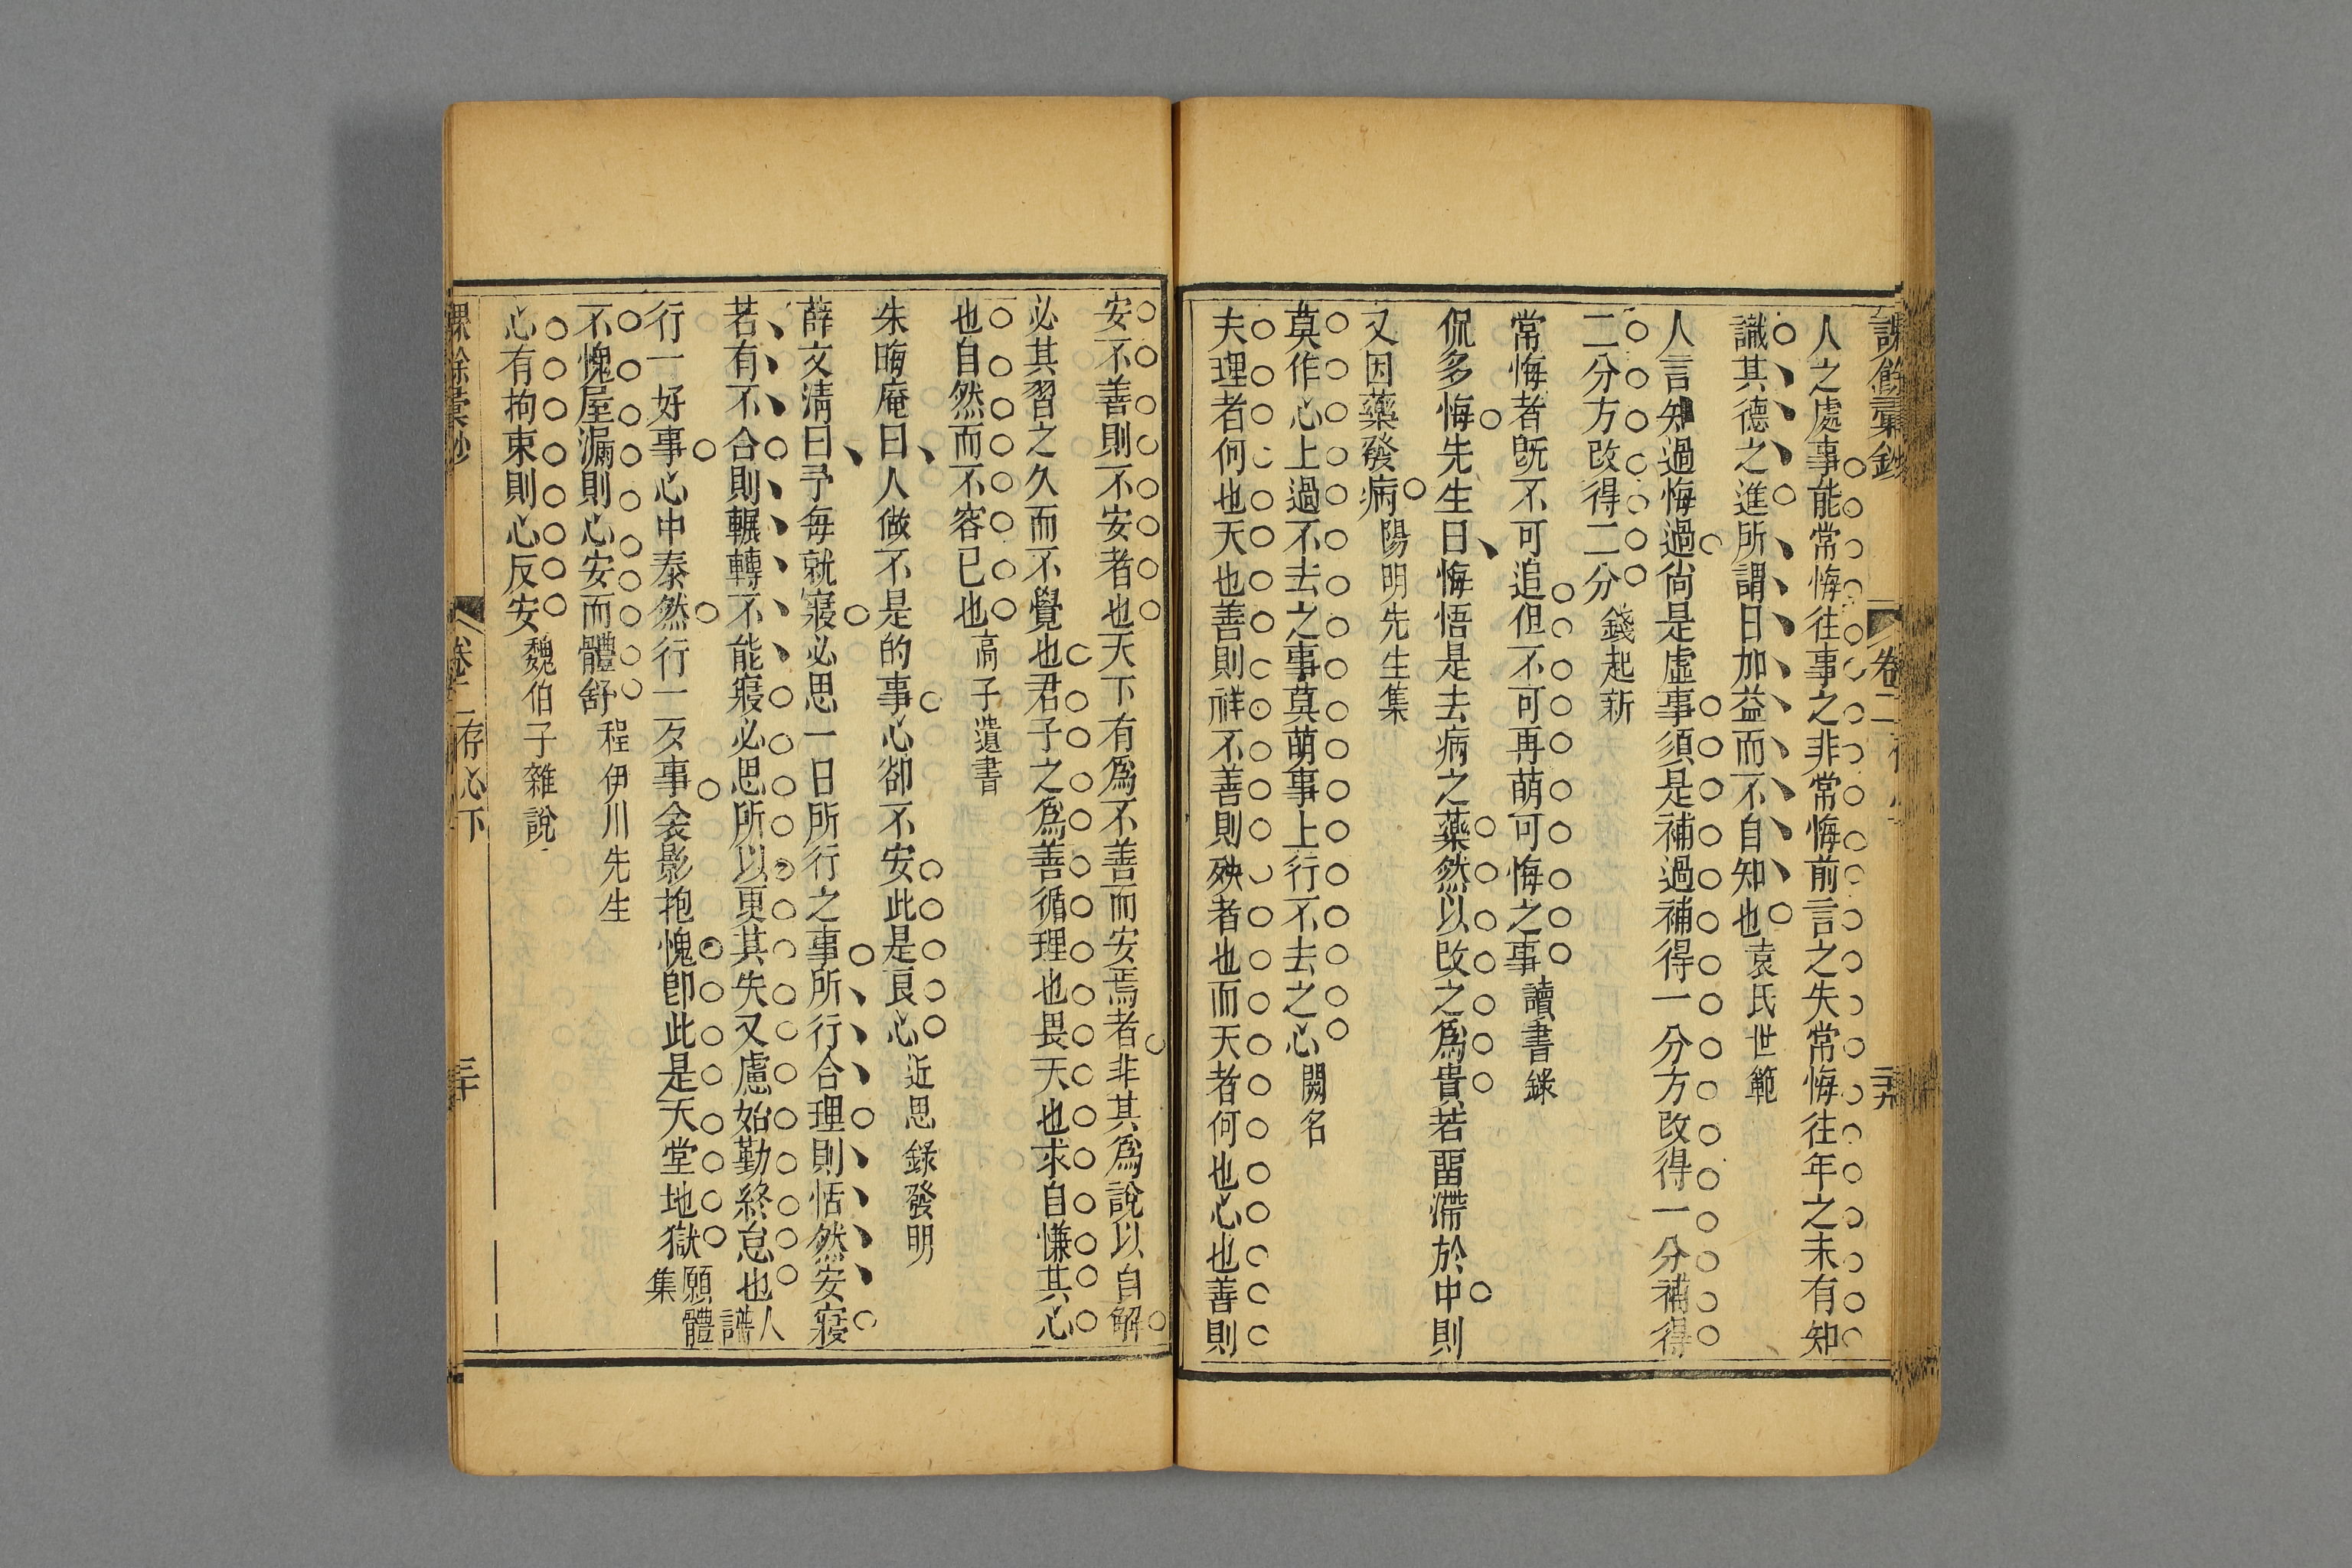 課餘彙鈔 卷二
人之處事能常悔往事之非常悔前言之失常悔往年之未有知
識其德之進所謂日加益而不自知也袁氏世範
人言知過悔過尚是虛事須是補過補得一分方改得一分補得
二分方改得二分錢起新
常悔者旣不可追但不可再萌可悔之事讀書錄
侃多悔先生曰悔悟是去病之藥然以改之爲貴若畱滯於中則
又因藥發病陽明先生集
莫作心上過不去之事莫萌事上行不去之心闕名
夫理者何也天也善則祥不善則殃者也而天者何也心也善則
安不善則不安者也天下有爲不善而安焉者非其爲說以自解
必其習之久而不覺也君子之爲善循理也畏天也求自慊其心
也自然而不容已也高子遺書
朱晦庵曰人做不是的事心卻不安此是良心近思錄發明
薛文淸曰予每就寢必思一日所行之事所行合理則恬然安寢
若有不合則輾轉不能寢必思所以更其失又慮始勤終怠也人譜
行一好事心中泰然行一歹事衾影抱愧卽此是天堂地獄願體集
不愧屋漏則心安而體舒程伊川先生
心有拘束則心反安魏伯子雜說
課餘彙鈔 卷二 存心下 三十